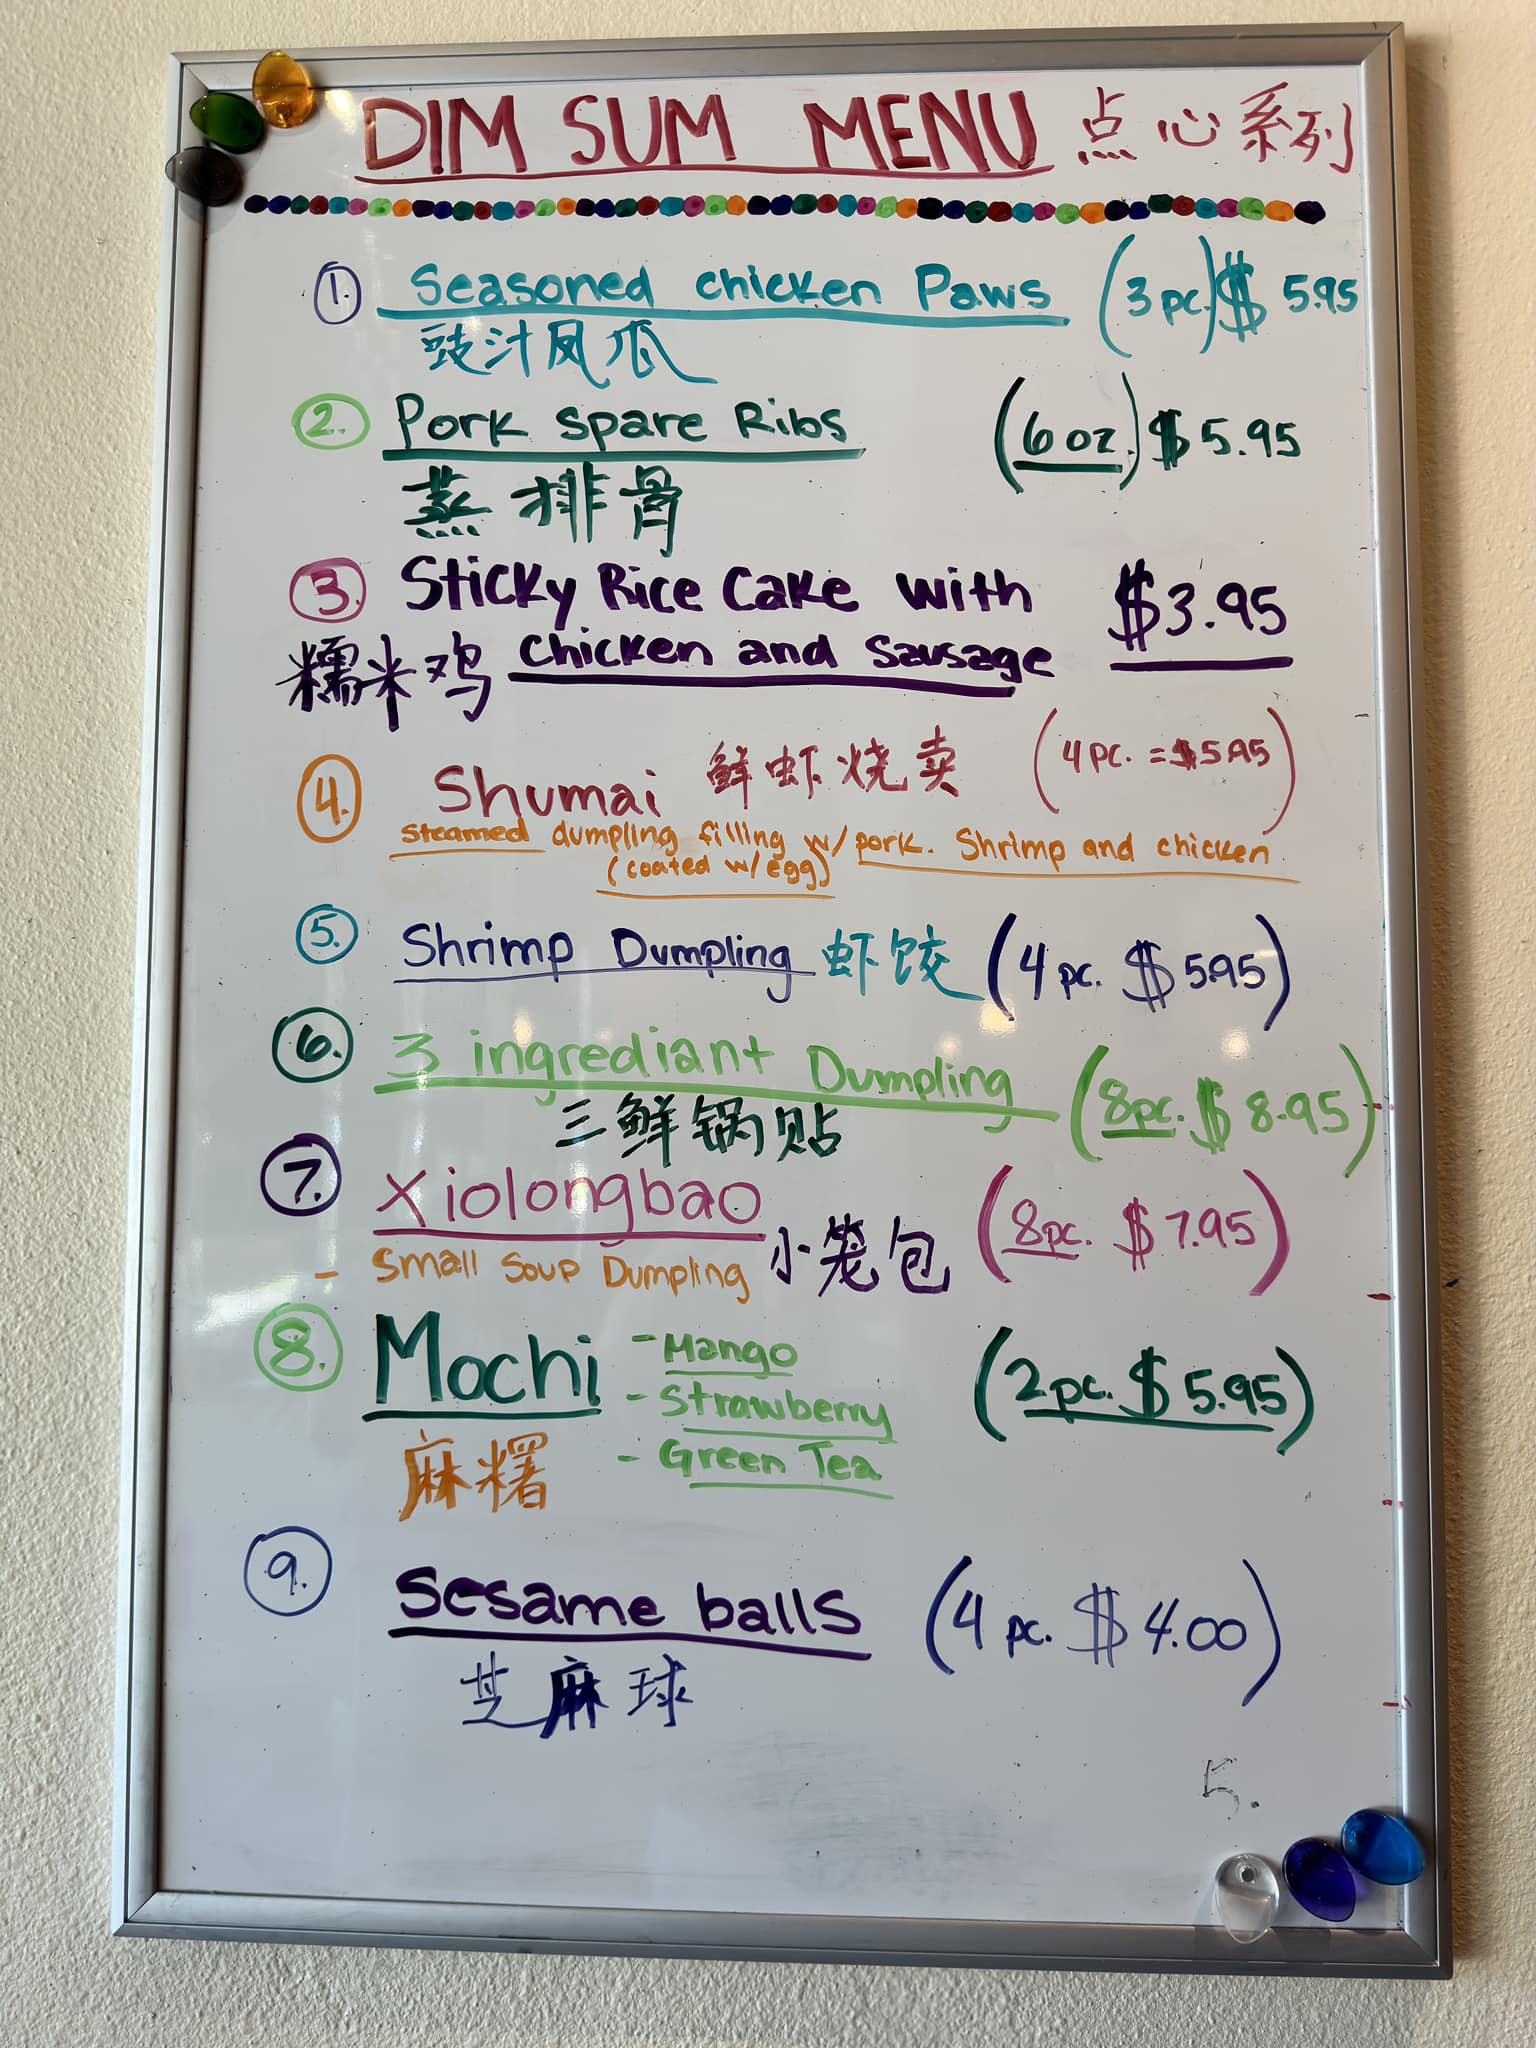 DIM SUM MENU 点心系列
1. Seasoned chicken Paws (3 pc.) $ 5.95
豉汁凤爪
2. Pork Spare Ribs (6 oz.) $ 5.95
蒸排骨
3. Sticky Rice Cake with $3.95
糯米鸡 chicken and Sausage
4. Shumai 鲜虾烧卖 (4 PC. = $5.95)
Steamed dumpling filling w/ pork. Shrimp and chicken
(coated w/egg)
5. Shrimp Dumpling 虾饺 (4 pc. $ 5.95)
6. 3 ingrediant Dumpling (8pc. $ 8.95)
三鲜锅贴
7. Xiolongbao (8pc. $ 7.95)
- Small Soup Dumpling 小笼包
8. Mochi - Mango (2 pc. $ 5.95)
- Strawberry
- Green Tea
麻糬
9. Sesame balls (4 pc. $ 4.00)
芝麻球
5.